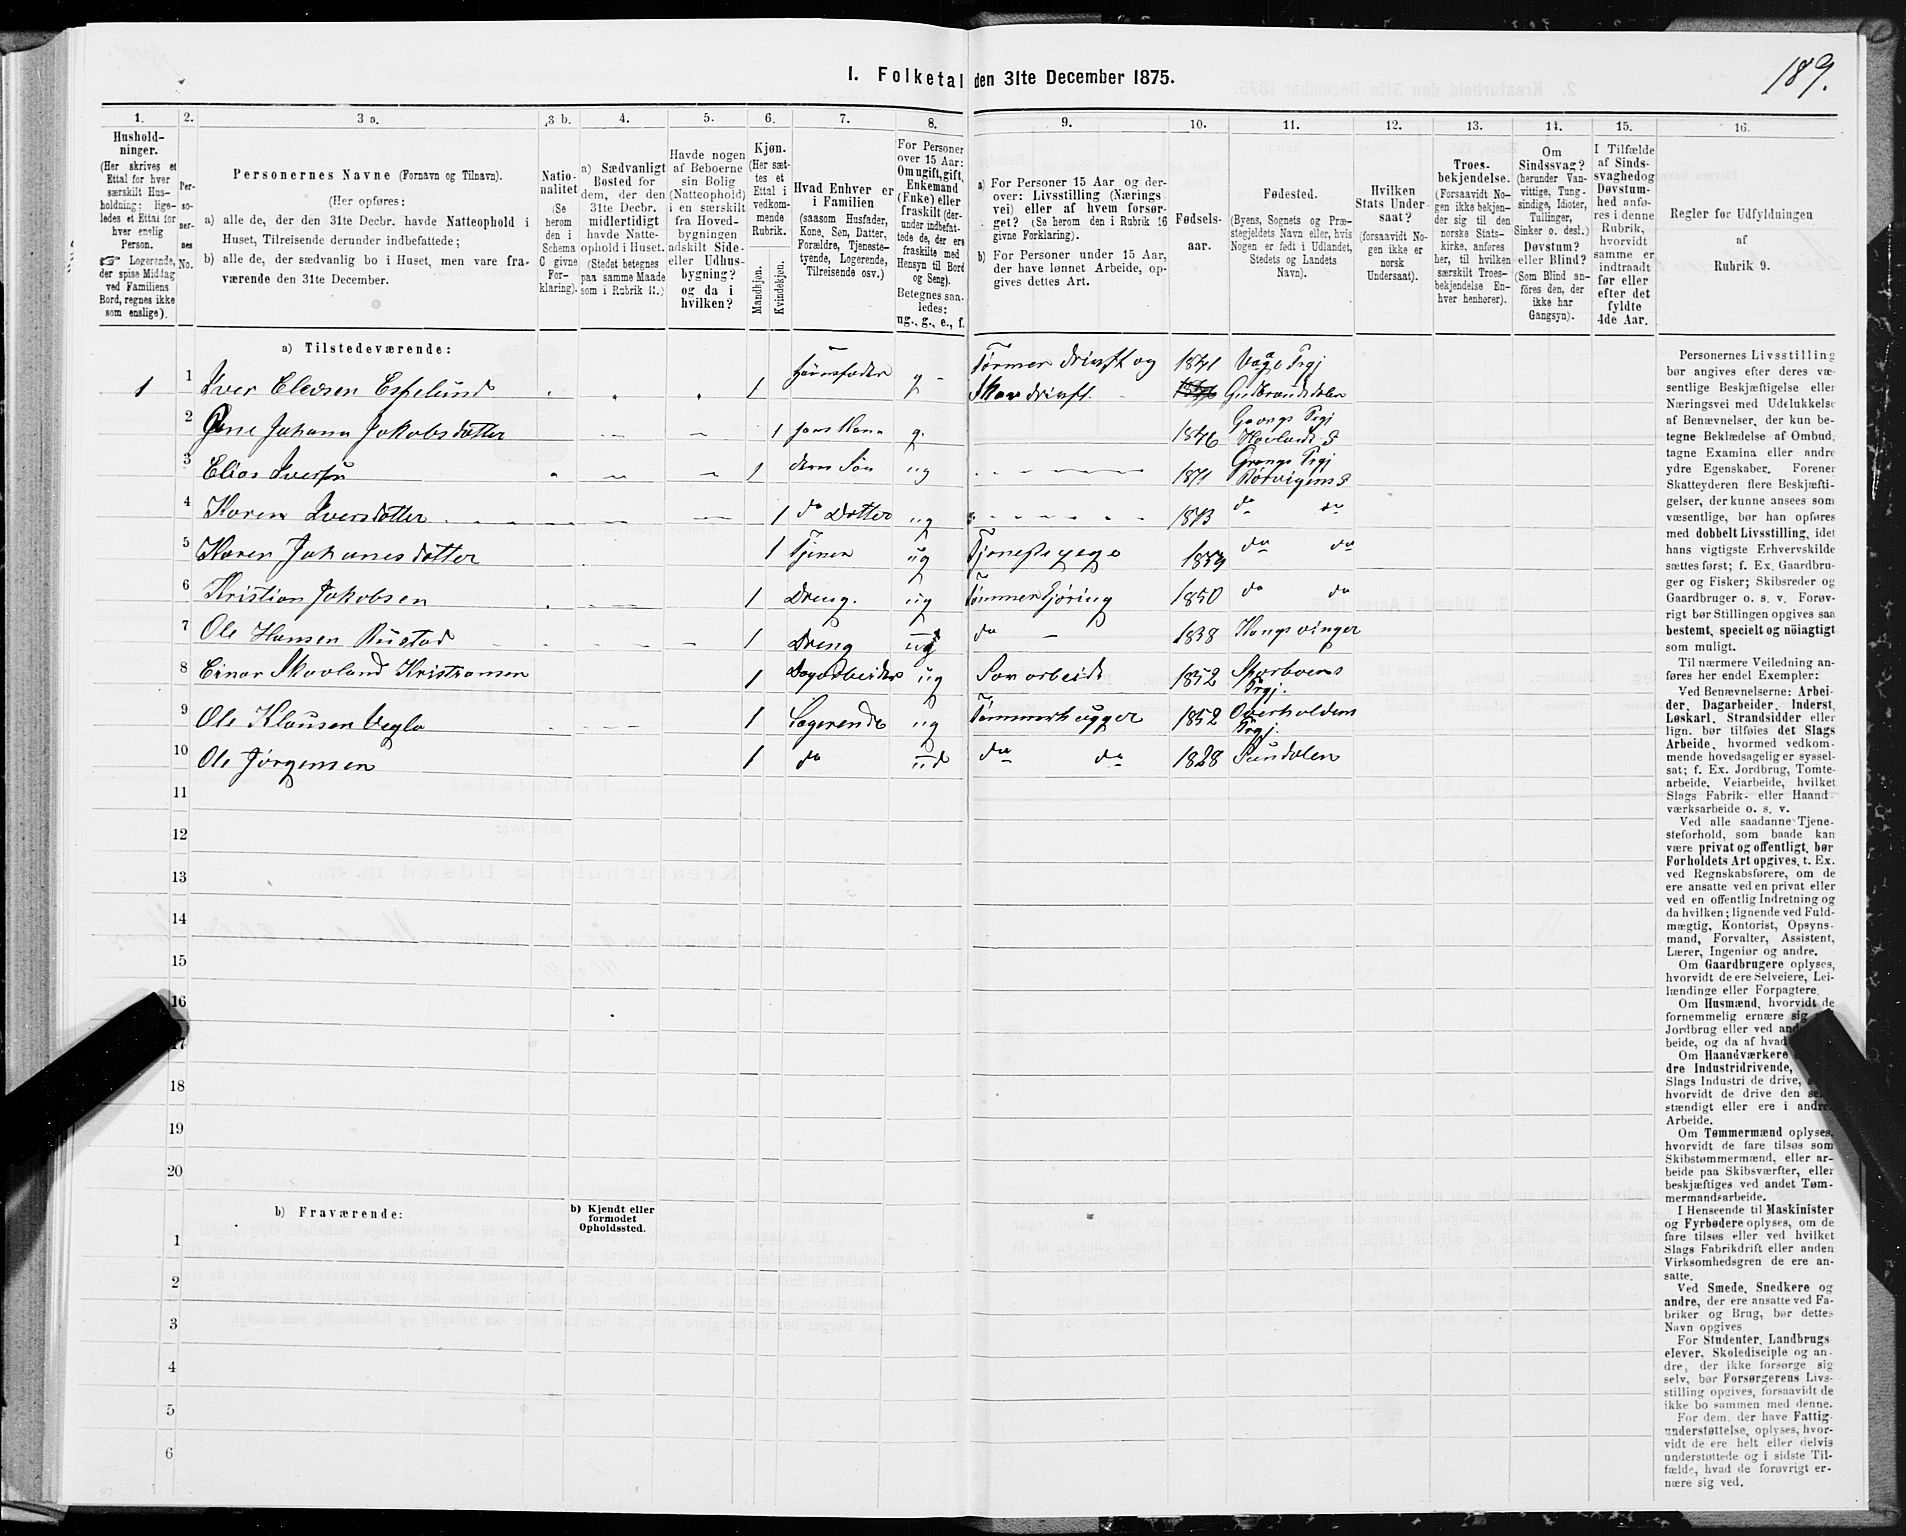 189.
I. Folketal den 31te December 1875.
1. 2. 3 a. 3 b. 4. 5. 6. 7. 8. 9. 10. 11. 12. 13. 14. 15. 16.
Hushold-
ninger.
(Her skrives et
Ettal for hver
særskilt Hus-
holdning; lige-
ledes et Ettal for
hver enslig
Person.
☞ Logerende,
der spise Middag
ved Familiens
Bord, regnes ikke
som enslige).
Per-
so-
ner-
nes
No.
Personernes Navne (Fornavn og Tilnavn).
(Her opføres:
a) alle de, der den 31te Decbr. havde Natteophold i
Huset, Tilreisende derunder indbefattede;
b) alle de, der sædvanlig bo i Huset, men vare fra-
værende den 31te December.
Natio-
nalitet
(Se
herom
den i
Schema
C givne
For-
klaring).
a) Sædvanligt
Bosted for
dem, der den
31te Decbr.
midlertidigt
havde Natte-
ophold i Huset.
(Stedet betegnes
paa samme Maade
som i Rubrik 11.)
Havde nogen
af Beboerne
sin Bolig
(Natteophold)
i en særskilt
fra Hoved-
bygningen
adskilt Side-
eller Udhus-
bygning?
og da i
hvilken?
Kjøn.
(Her sæt-
tes et
Ettal i
vedkom-
mende
Rubrik.
Mandkjøn.
Kvindekjøn.
Hvad Enhver er
i Familien
(saasom Husfader,
Kone, Søn, Datter,
Forældre, Tjeneste-
tyende, Logerende,
Tilreisende osv.)
For Personer
over 15 Aar:
Om ugift, gift,
Enkemand
(Enke) eller
fraskilt (der-
under indbefat-
tede de, der ere
fraskilte med
Hensyn til Bord
og Seng).
Betegnes saa-
ledes:
ug., g., e., f.
a) For Personer 15 Aar og der-
over: Livsstilling (Nærings
vei) eller af hvem forsør-
get? (Se herom den i Rubrik 16
givne Forklaring).
b) For Personer under 15 Aar,
der have lønnet Arbeide, op-
gives dettes Art.
Fødsels-
aar.
Fødested.
(Byens, Sognets og Præ-
stegjeldets Navn eller, hvis
Nogen er født i Udlandet,
Stedets og Landets
Navn).
Hvilken
Stats Under-
saat?
(forsaavidt No-
gen ikke er
norsk
Undersaat).
Troes-
bekjendelse.
(Forsaavidt No-
gen ikke bekjen-
der sig til den
norske Stats-
kirke, anføres
her, til hvilken
særskilt Troes-
bekjendelse En-
hver henhører).
Om
Sindssvag?
(herunder Van-
vittige, Tung-
sindige, Idioter,
Tullinger,
Sinker o. desl.)
Døvstum?
eller Blind?
(Som Blind an-
føres den, der
ikke har
Gangsyn).
I Tilfælde
af Sinds-
svaghed og
Døvstum-
hed anfø-
res i denne
Rubrik,
hvorvidt
samme er
indtraadt
før eller
efter det
fyldte
4de Aar.
Regler for Udfyldningen
af
Rubrik 9.
a) Tilstedeværende:
1 1 Iver Elevsen Espelund 1 Huusfader g Tømmer drivft og 1841 Vaage Prgj
Skovdrivft. Gudbrandsdalen
2 Jane Johana Jakobsdatter 1 hans Kone g. 1846 Grongs Prgj
3 Elias Iversen 1 deres Søn ug 1871 Grongs Prgj
Rørvigens S
4 Karen Iversdatter 1 do Datter ug 1873 do do
5 Karen Johanesdatter 1 Tjener ug Tjenestepige 1859 do do
6 Kristian Jakobsen 1 Dreng. ug Tømmerkjøring 1850 do do
7 Ole Hansen Rustad 1 Dreng ug do 1838 Kongsvinger
8 Einar Skavland Kristiansen 1 Dagarbeider ug Savarbeide 1852 Skjerboens
Prgj.
9 Ole Klausen Vegla 1 Logerende ug Tømmerhugger 1852 Overholdens
Prgj.
10 Ole Jørgensen 1 do ud do do 1828 Sundalen
11
12
13
14
15
16
17
18
19
20
b) Fraværende:
b) Kjendt eller
formodet
Opholdssted.
1
2
3
4
5
6
Personernes Livsstilling
bør angives efter deres væ-
sentlige Beskjæftigelse eller
Næringsvei med Udelukkelse
af Benævnelser, der kun be-
tegne Beklædelse af Ombud,
tagne Examina eller andre
ydre Egenskaber. Forener
Skatteyderen flere Beskjæfti-
gelser, der kunne ansees som
væsentlige, bør han opføres
med dobbelt Livsstilling, idet
hans vigtigste Erhvervskilde
sættes først; f. Ex. Gaardbru-
ger og Fisker; Skibsreder og
Gaardbruger o. s. v. Forøv-
rigt bør Stillingen opgives saa
bestemt, specielt og nöiagtigt
som muligt.
Til nærmere Veiledning an-
føres her endel Exempler:
Ved Benævnelserne: Arbei-
der, Dagarbeider, Inderst,
Løskarl, Strandsidder eller
lign. bør tilføies det Slags
Arbeide, hvormed vedkom-
mende hovedsagelig er syssel-
sat; f. Ex. Jordbrug, Tomte-
arbeide, Veiarbeide, hvilket
Slags Fabrik- eller Haand-
værksarbeide o. s. v.
Ved alle saadanne Tjene-
steforhold, som baade kan
være privat og offentligt, bør
Forholdets Art opgives, t. Ex.
ved Regnskabsførere, om de
ere ansatte ved en privat eller
ved en offentlig Indretning og
da hvilken; lignende ved Fuld-
mægtig, Kontorist, Opsyns-
mand, Forvalter, Assistent,
Lærer, Ingeniør og andre.
Om Gaardbrugere oplyses,
hvorvidt de ere Selveiere, Lei-
lændinge eller Forpagtere.
Om Husmænd, hvorvidt de
fornemmelig ernære sig
Jordbrug eller ved
beide, og da af hvad
Om Haandværkere
dre Industridrivende,
Slags Industri de drive,
hvorvidt de drive den
stændigt eller ere i andres
Arbeide.
Om Tømmermænd oplyses,
hvorvidt de fare tilsøs som
Skibstømmermænd, eller ar-
beide paa Skibsværfter, eller
beskjæftiges ved andet Tøm-
mermandsarbeide.
I Henseende til Maskinister
og Fyrbødere oplyses, om de
fare tilsøs eller ved hvilket
Slags Fabrikdrift eller anden
Virksomhedsgren de ere an-
satte.
Ved Smede, Snedkere og
andre, der ere ansatte ved Fa-
briker og Brug, bør dettes
Navn opgives
For Studenter, Landbrugs
elever, Skoledisciple og an-
dre, der ikke forsørge sig
selv, bør Forsørgerens Livs-
stilling opgives, forsaavidt de
ikke bo sammen med denne.
For dem, der have Fattig-
understøttelse, oplyses, hvor-
vidt de ere helt eller delvis
understøttede og i sidste Til-
fælde, hvad de forøvrigt er-
nære sig ved.